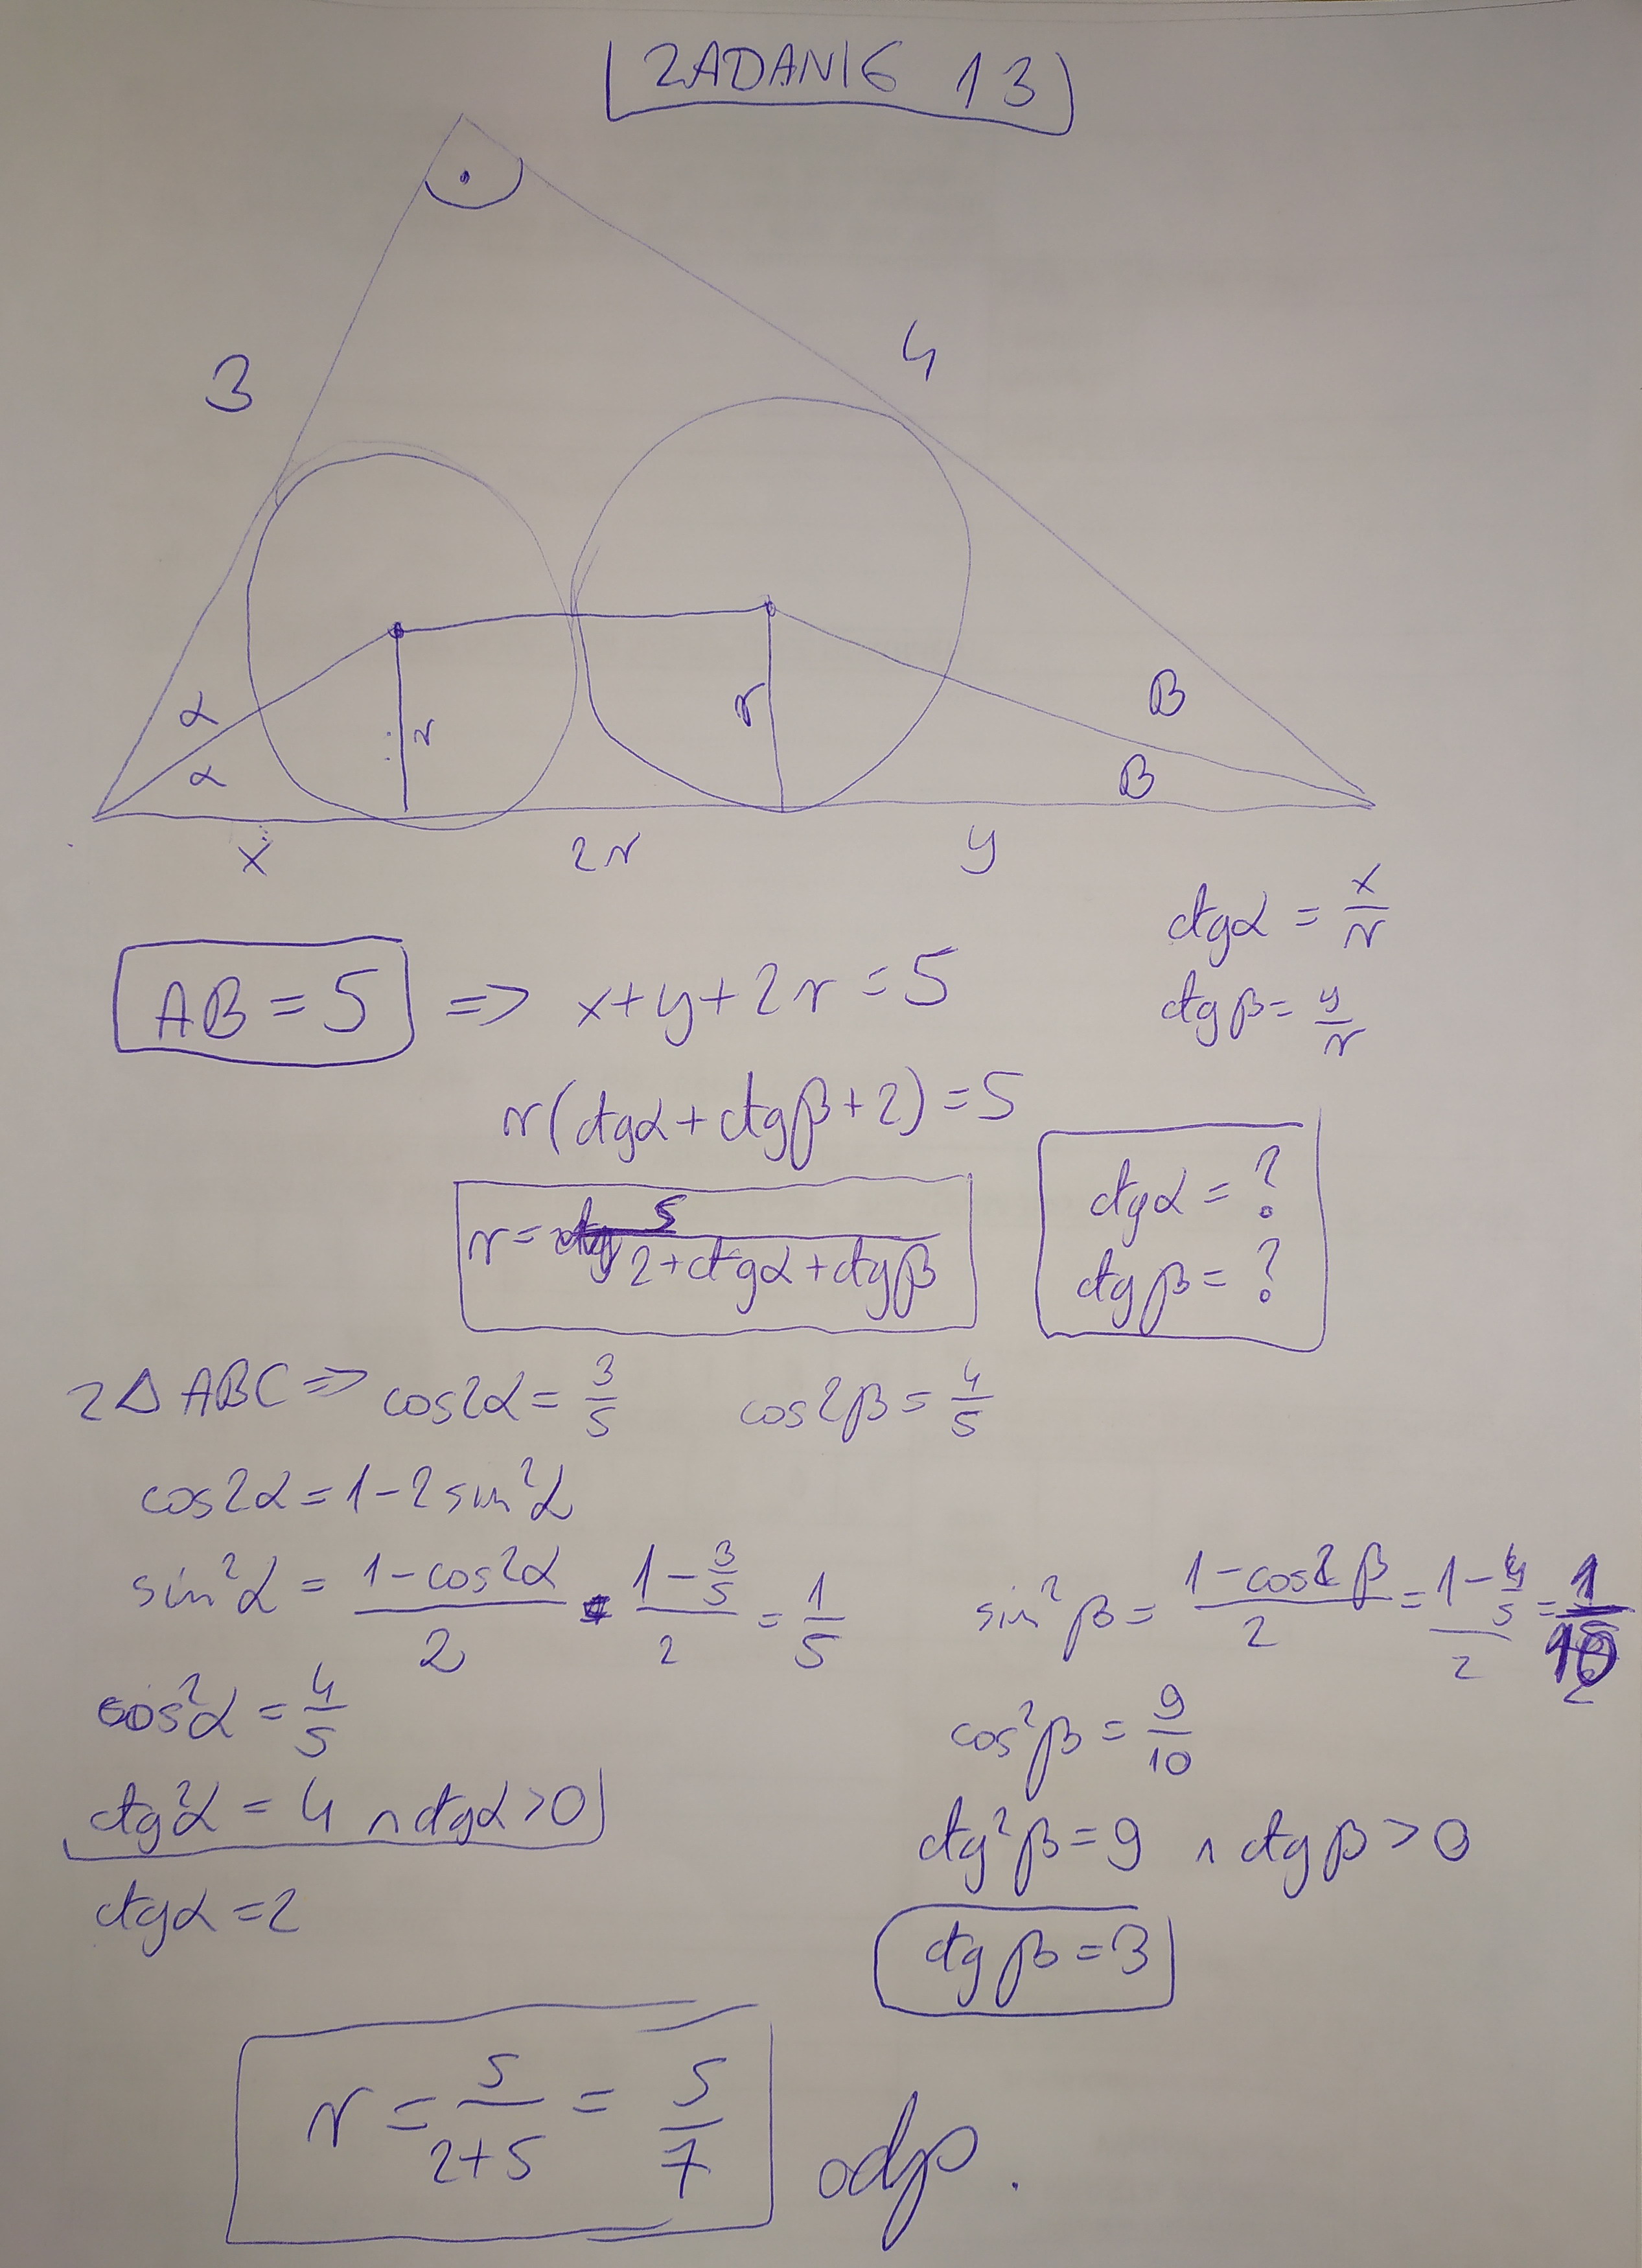 ZADANIE 13
3
4
α
α
r
r
β
β
x
2r
y
ctgα = x/r
AB = 5 => x+y+2r = 5
ctgβ = y/r
r(ctgα + ctgβ + 2) = 5
r = 5/(2+ctgα+ctgβ)
ctgα = ?
ctgβ = ?
z △ ABC => cos2α = 3/5 cos2β = 4/5
cos2α = 1-2sin²α
sin²α = (1-cos2α)/2 = (1-3/5)/2 = 1/5
sin²β = (1-cos2β)/2 = (1-4/5)/2 = 1/10
cos²α = 4/5
cos²β = 9/10
ctg²α = 4 ∧ ctgα > 0
ctg²β = 9 ∧ ctgβ > 0
ctgα = 2
ctgβ = 3
r = 5/(2+5) = 5/7 odp.